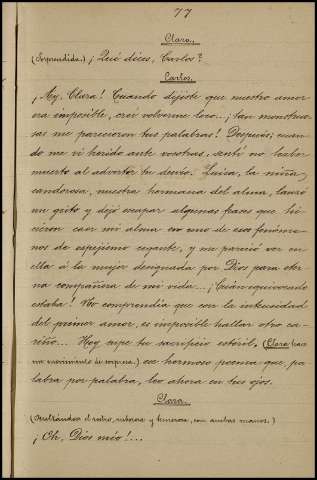 77
Clara.
(Sorprendida.) ¡Qué dices, Carlos?
Carlos.
¡Ay, Clara! Cuando dijiste que nuestro amor
era imposible, creí volverme loco...; ¡tan monstruo-
sas me parecieron tus palabras! Después, cuan-
do me vi herido ante vosotras, sentí no haber
muerto al advertir tu desvío. Luisa, la niña
candorosa, nuestra hermana del alma, lanzó
un grito y dejó escapar algunas frases que hi-
cieron caer mi alma en uno de esos fenóme-
nos de espejismo cegante, y me pareció ver en
ella á la mujer designada por Dios para eter-
na compañera de mi vida... ¡Cuán equivocado
estaba! No comprendía que con la intensidad
del primer amor, es imposible hallar otro ca-
riño... Hoy supe tu sacrificio estéril. (Clara hace
un movimiento de sorpresa.) ese hermoso poema que, pa-
labra por palabra, leo ahora en tus ojos.
Clara.
(Ocultándose el rostro, ruborosa y temerosa, con ambas manos.)
¡Oh, Dios mío!...